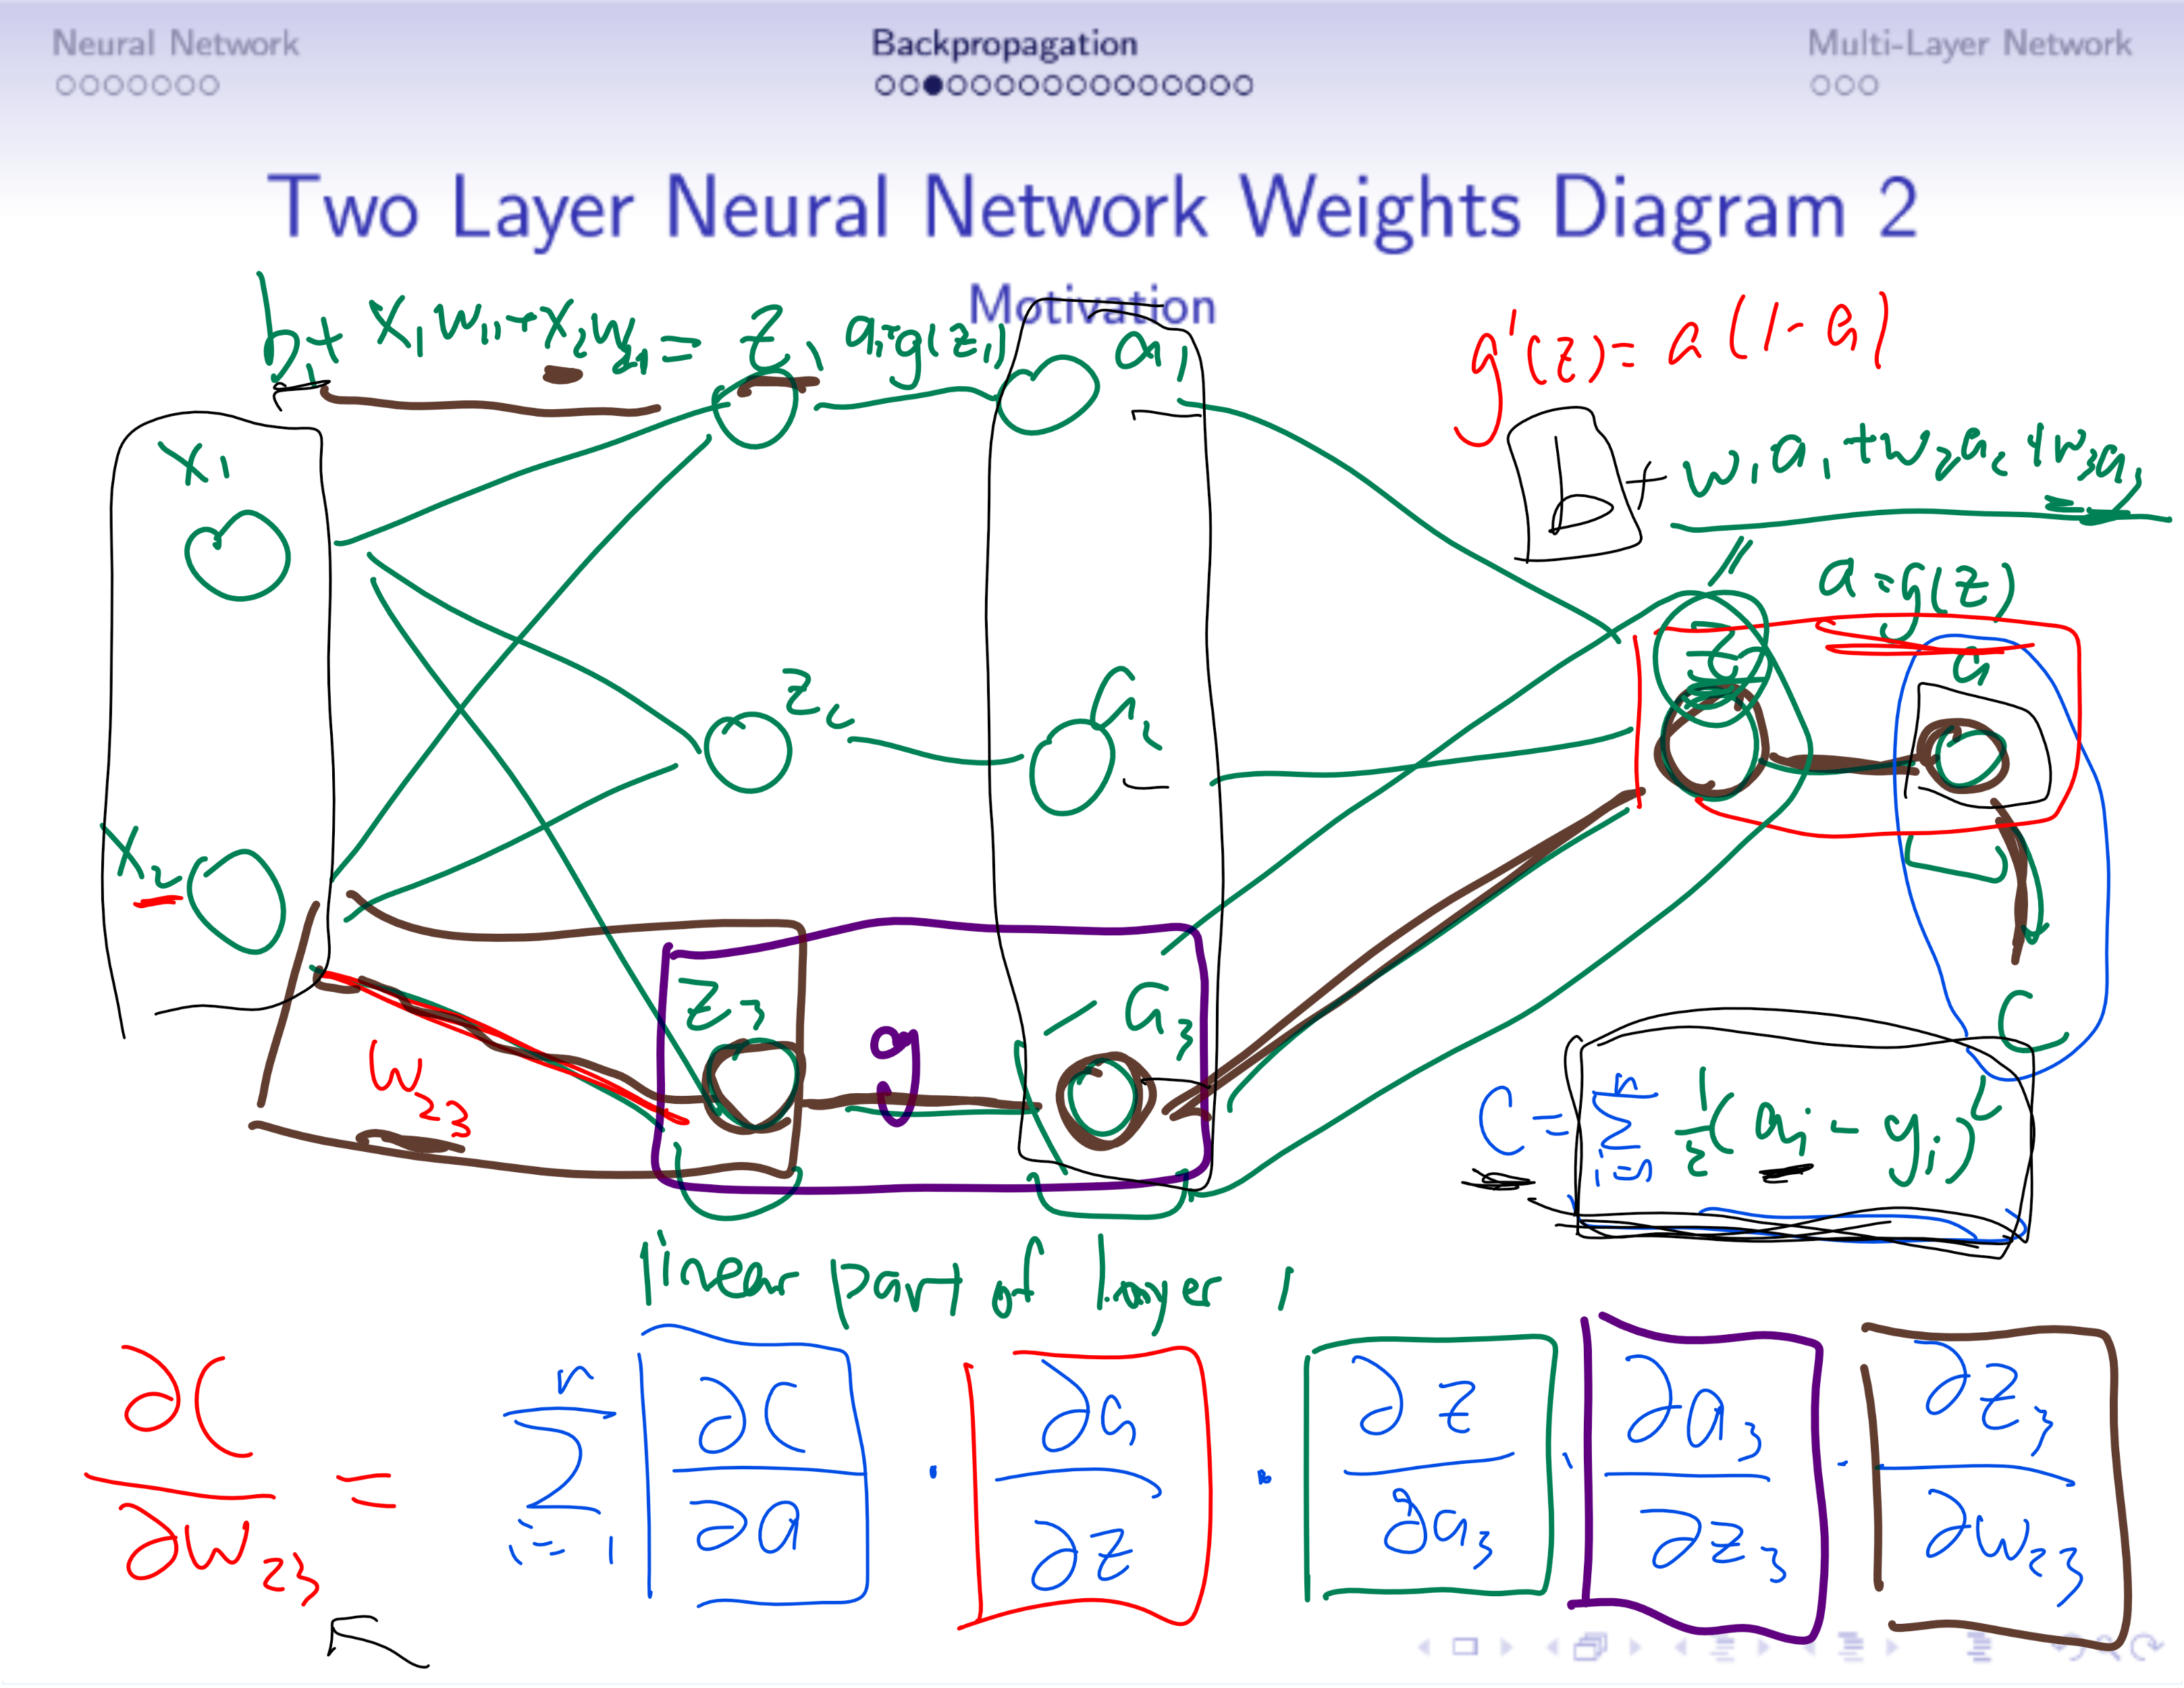 Neural Network
Backpropagation
Multi-Layer Network
Two Layer Neural Network Weights Diagram 2
Motivation
b₁ + x₁ w₁₁ + x₂ w₂₁ = z₁, a₁ = g(z₁)
a₁
g'(z) = a(1-a)
b + w₁a₁ + w₂a₂ + w₃a₃
x₁
a = g(z)
z
a
z₂
a₂
x₂
z₃
g
a₃
w₂₃
C
C = Σ ½(aᵢ - yᵢ)²
n
linear part of layer 1
∂C/∂w₂₃ = Σⁿᵢ₌₁ ∂C/∂a · ∂a/∂z · ∂z/∂a₃ · ∂a₃/∂z₃ · ∂z₃/∂w₂₃